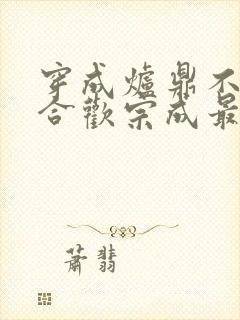 穿成爐鼎不
合歡宗成最
蕭翡